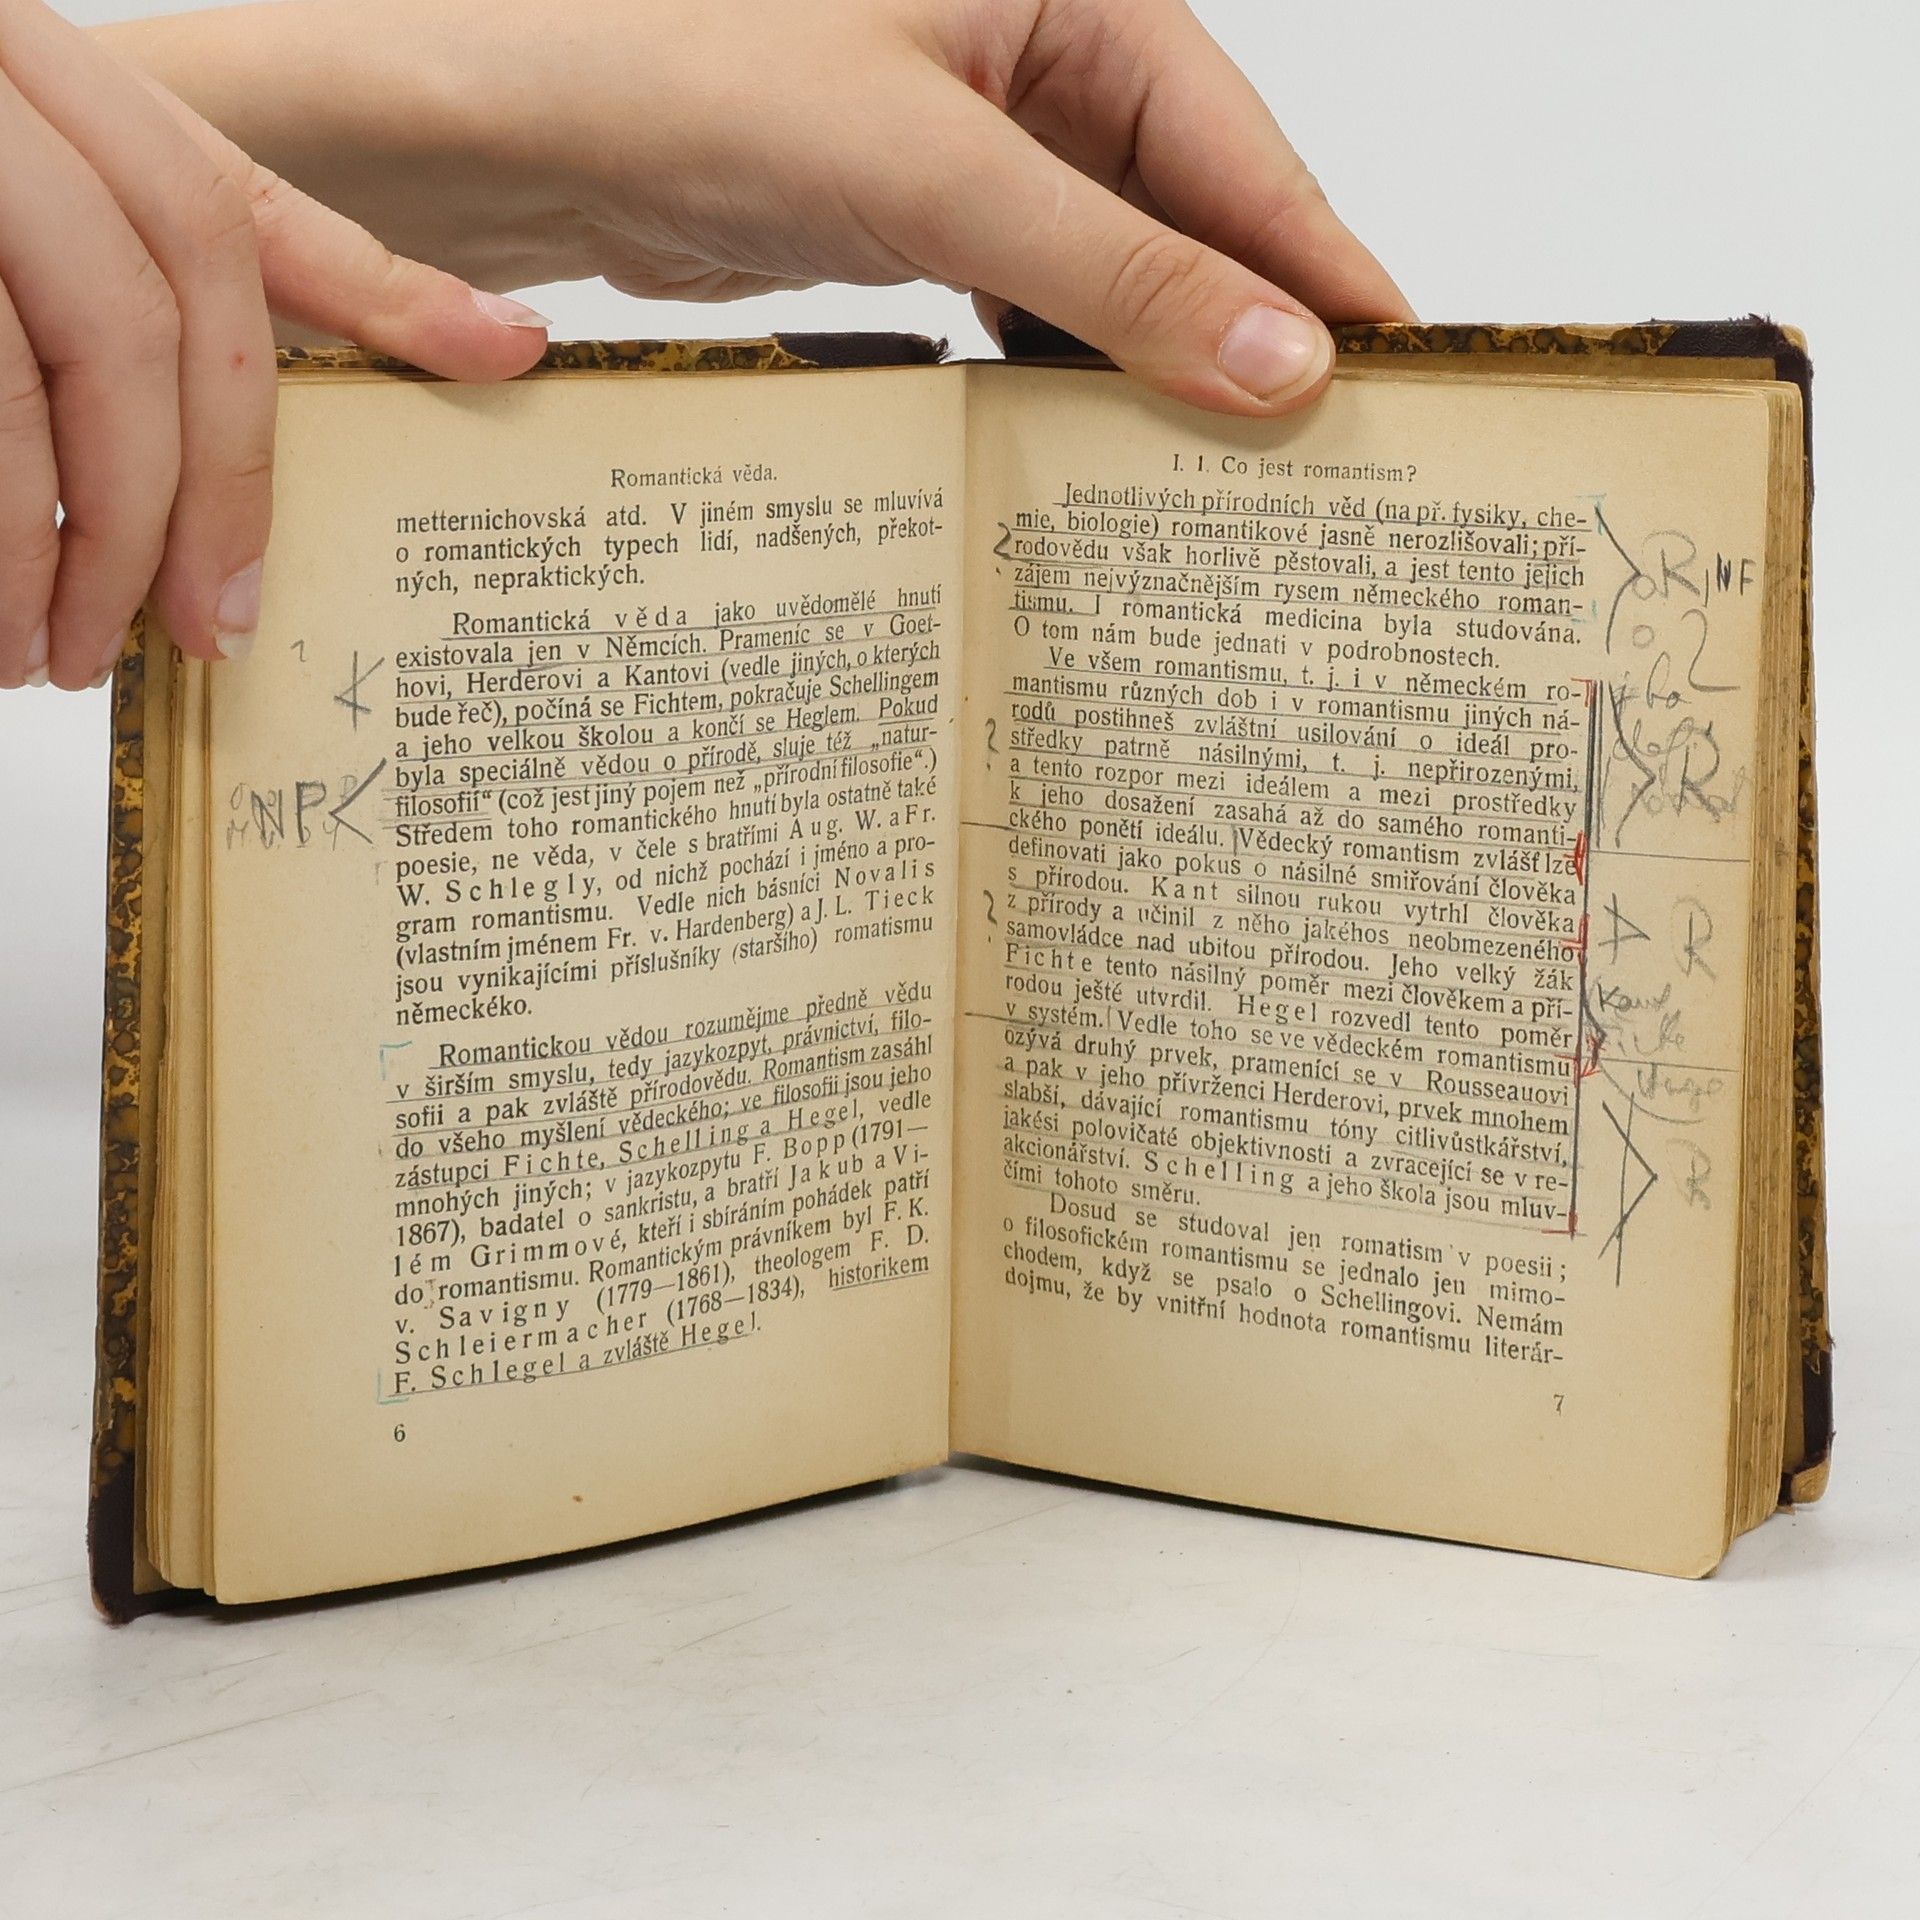 Romantická věda.
metternichovská atd. V jiném smyslu se mluvívá
o romantických typech lidí, nadšených, překot-
ných, nepraktických.
Romantická věda jako uvědomělé hnutí
existovala jen v Němcích. Prameníc se v Goet-
hovi, Herderovi a Kantovi (vedle jiných, o kterých
bude řeč), počíná se Fichtem, pokračuje Schellingem
a jeho velkou školou a končí se Heglem. Pokud
byla speciálně vědou o přírodě, sluje též „natur-
filosofií“ (což jest jiný pojem než „přírodní filosofie“.)
Středem toho romantického hnutí byla ostatně také
poesie, ne věda, v čele s bratřími Aug. W. a Fr.
W. Schlegly, od nichž pochází i jméno a pro-
gram romantismu. Vedle nich básníci Novalis
(vlastním jménem Fr. v. Hardenberg) a J. L. Tieck
jsou vynikajícími příslušníky (staršího) romatismu
německéko.
Romantickou vědou rozumějme předně vědu
v širším smyslu, tedy jazykozpyt, právnictví, filo-
sofii a pak zvláště přírodovědu. Romantism zasáhl
do všeho myšlení vědeckého; ve filosofii jsou jeho
zástupci Fichte, Schelling a Hegel, vedle
mnohých jiných; v jazykozpytu F. Bopp (1791—
1867), badatel o sankristu, a bratří Jakub a Vi-
lém Grimmové, kteří i sbíráním pohádek patří
do romantismu. Romantickým právníkem byl F. K.
v. Savigny (1779—1861), theologem F. D.
Schleiermacher (1768—1834), historikem
F. Schlegel a zvláště Hegel.
6
NP
I. 1. Co jest romantism?
Jednotlivých přírodních věd (na př. fysiky, che-
mie, biologie) romantikové jasně nerozlišovali; pří-
rodovědu však horlivě pěstovali, a jest tento jejich
zájem nejvýznačnějším rysem německého roman-
tismu. I romantická medicina byla studována.
O tom nám bude jednati v podrobnostech.
Ve všem romantismu, t. j. i v německém ro-
mantismu různých dob i v romantismu jiných ná-
rodů postihneš zvláštní usilování o ideál pro-
středky patrně násilnými, t. j. nepřirozenými,
a tento rozpor mezi ideálem a mezi prostředky
k jeho dosažení zasahá až do samého romanti-
ckého ponětí ideálu. Vědecký romantism zvlášť lze
definovati jako pokus o násilné smiřování člověka
s přírodou. Kant silnou rukou vytrhl člověka
z přírody a učinil z něho jakéhos neobmezeného
samovládce nad ubitou přírodou. Jeho velký žák
Fichte tento násilný poměr mezi člověkem a pří-
rodou ještě utvrdil. Hegel rozvedl tento poměr
v systém. Vedle toho se ve vědeckém romantismu
ozývá druhý prvek, pramenící se v Rousseauovi
a pak v jeho přívrženci Herderovi, prvek mnohem
slabší, dávající romantismu tóny citlivůstkářství,
jakési polovičaté objektivnosti a zvracející se v re-
akcionářství. Schelling a jeho škola jsou mluv-
čími tohoto směru.
Dosud se studoval jen romatism v poesii;
o filosofickém romantismu se jednalo jen mimo-
chodem, když se psalo o Schellingovi. Nemám
dojmu, že by vnitřní hodnota romantismu literár-
7
R, NF
R
R
Kant
R